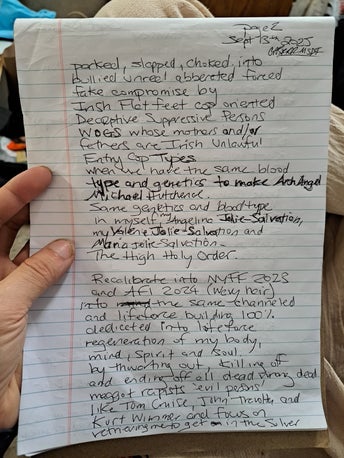 Page 2
Sept 13th 2025
parked, slapped, choked, into
bullied unreal abberated forced
fake compromise by
Irish Flat feet cop oriented
Deceptive Suppressive Persons
WOGS whose mothers and/or
fethers are Irish Unlawful
Entry Cop Types
when we have the same blood
type and genetics to make ArchAngel
Michael Hutchence
Same genetics and bloodtype
in myself, Angelina Jolie-Salvation,
my Valerie Jolie-Salvation and
Maria Jolie-Salvation.
The High Holy Order.
Recalibrate into NYFF 2023
and AFI 2024 (wavy hair)
into the same channeled
and lifeforce building 100%
dedicated into
regeneration of my body,
mind, spirit and soul,
by thwarting out, killing off
and ending off all dead strong dead
maggot rapists 'evil persons'
like Tom Cruise, John Travolta, and
Kurt Wimmer and focus on
to get in the Silver